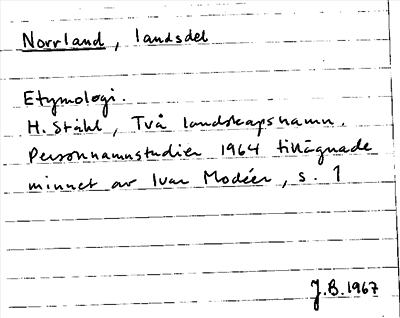 Norrland, landsdel
Etymologi.
H. Ståhl, Två landskapsnamn.
Personnamnstudier 1964 tillägnade
minnet av Ivar Modéer, s. 1
J.B. 1967